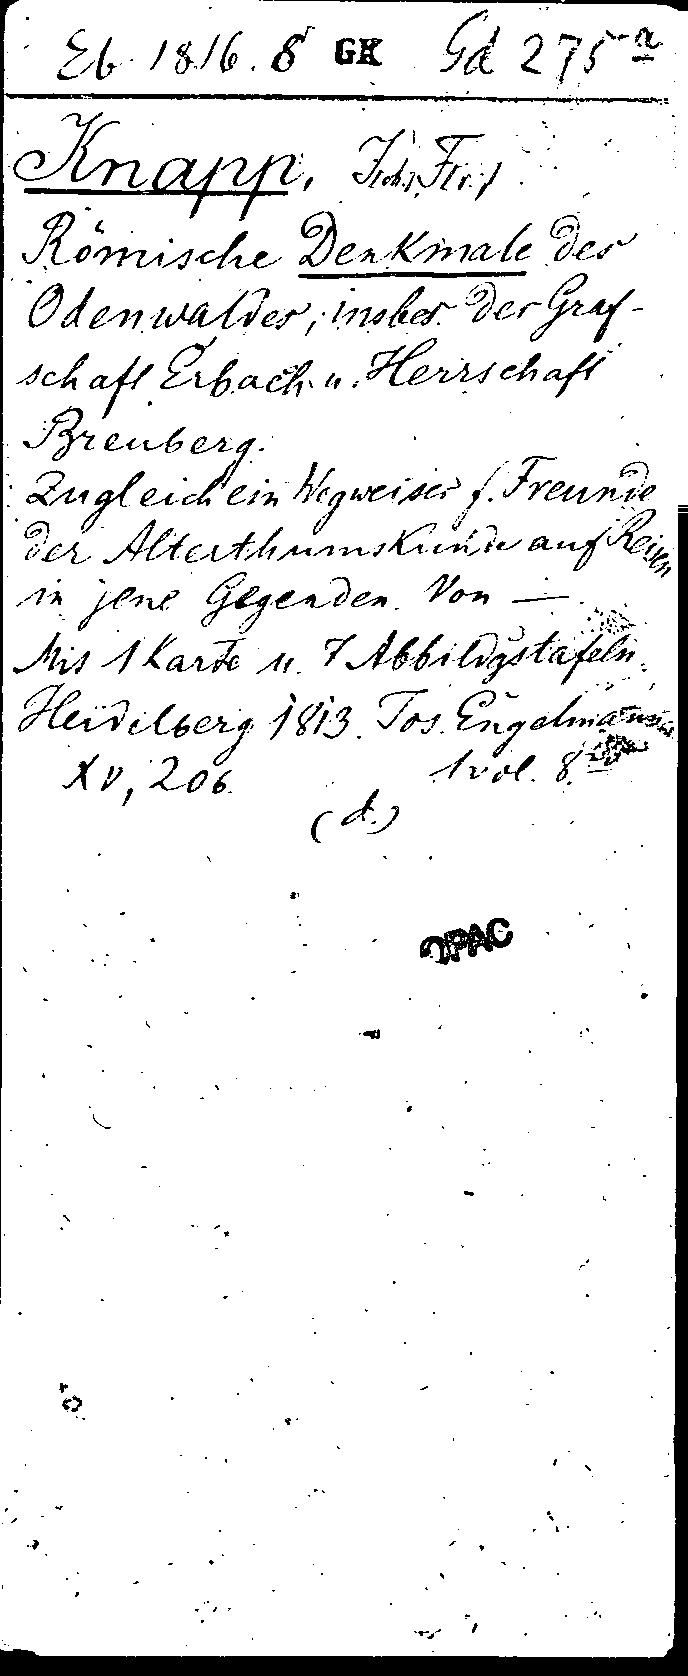 Eb 1816. 8 GK Gd 275 a
Knapp, Joh. Fr.
Römische Denkmale des
Odenwaldes, insbes. der Graf-
schaft Erbach u. Herrschaft
Breuberg.
Zugleich ein Wegweiser f. Freunde
der Alterthumskunde auf Reisen
in jene Gegenden. Von —
Mit 1 Karte u. 7 Abbildgstafeln.
Heidelberg 1813. Jos. Engelmann
XV, 206. 1 vol. 8.
(d.)
OPAC